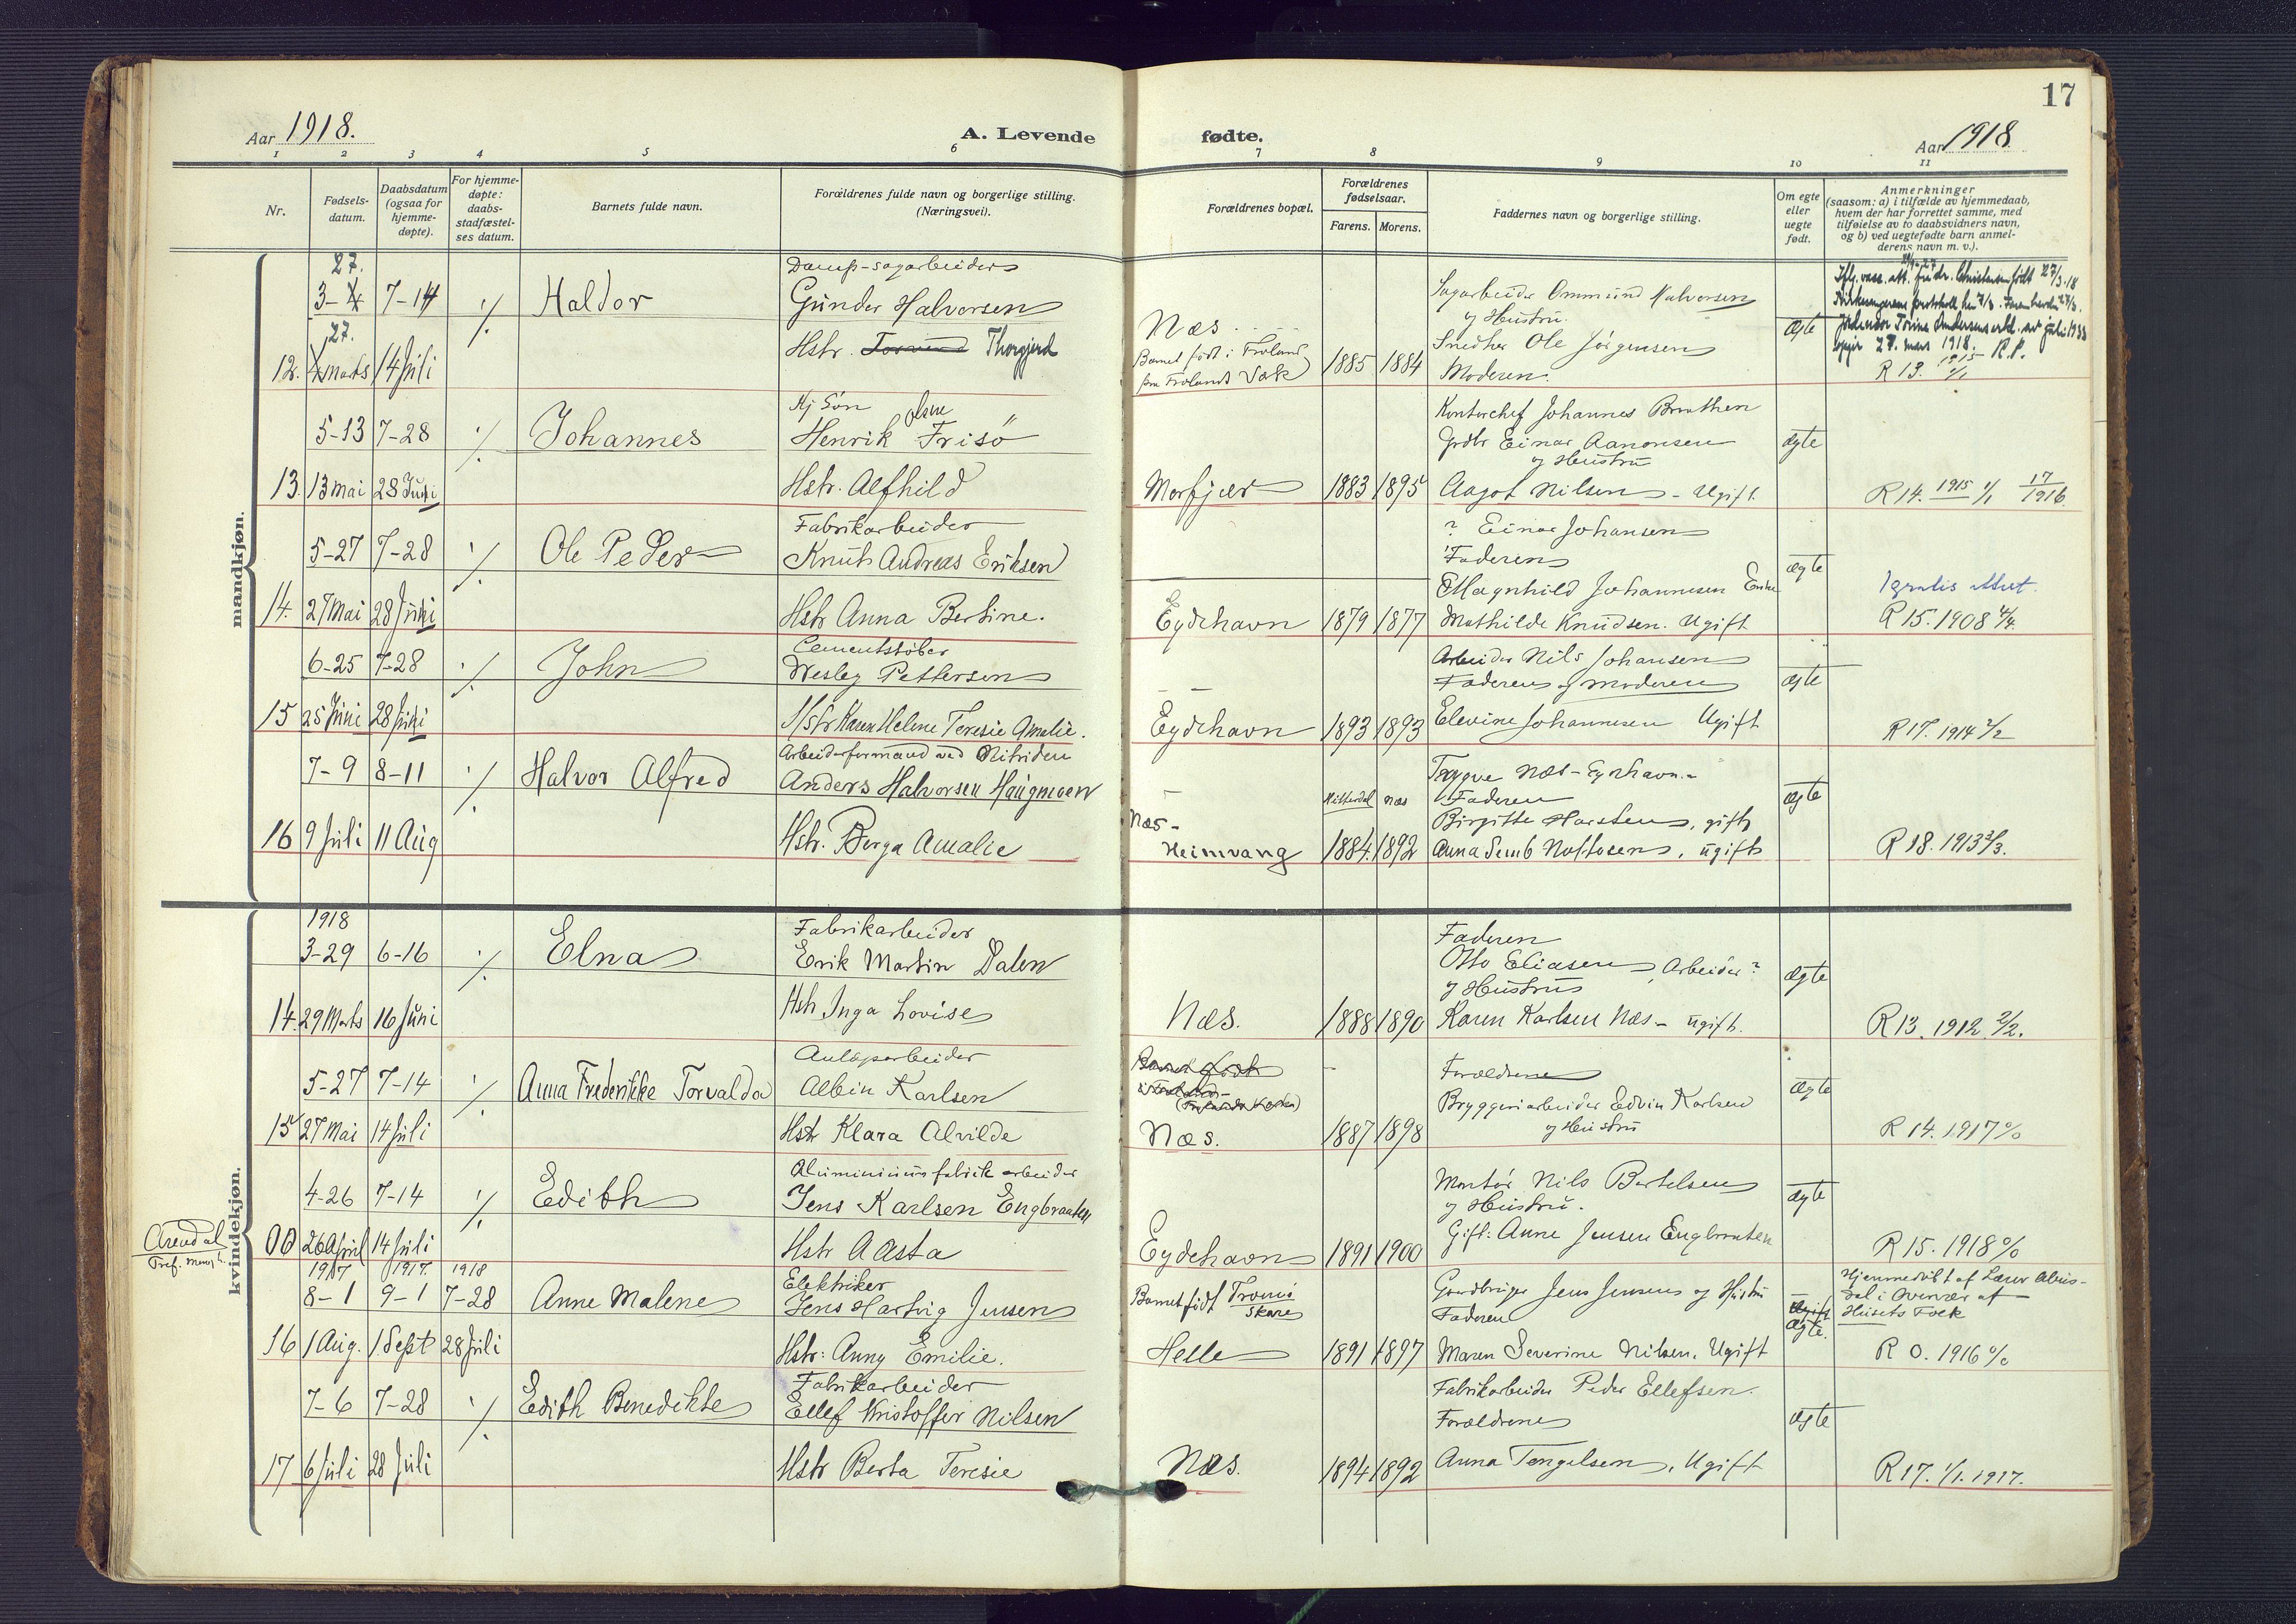 17
Aar 1918.
A. Levende fødte.
Aar 1918
1 2 3 4 5 6 7 8 9 10 11
Nr.
Fødsels-
datum.
Daabsdatum
(ogsaa for
hjemme-
døpte).
For hjemme-
døpte:
daabs-
stadfæstel-
ses datum.
Barnets fulde navn.
Forældrenes fulde navn og borgerlige stilling.
(Næringsvei).
Forældrenes bopæl.
Forældrenes
fødselsaar.
Farens. Morens.
Faddernes navn og borgerlige stilling.
Om egte
eller
uegte
født.
Anmerkninger
(saasom: a) i tilfælde av hjemmedaab,
hvem der har forrettet samme, med
tilføielse av to daabsvidners navn,
og b) ved uegtefødte barn anmel-
derens navn m. v.).
mandkjøn.
27.
3-4 7-14 ./. Haldor
27.
12. 4 marts 14 Juli
Damp-sagarbeider
Gunder Halvorsen
Hstr. Torvend Thorgjerd
Næs
Barnet født i Froland
1885 1884
Sagarbeider Ommund Halvorsen
og Hustru.
Snedker Ole Jørgensen
Moderen.
ægte
27/3. 18
27. mars 1918. R.P.
R 13. 1915 1/1
5-13 7-28 ./. Johannes
13 13 mai 28 Juni
Kj Søn
Henrik Olsen Frisö
Hstr. Alfhild
Morfjær 1883 1895
Kontorchef Johannes Braathen
Grdbr Einar Aanonsen
og Hustru
Aagot Nilsen - Ugift
ægte
R 14. 1915 1/1 17/1916.
5-27 7-28 ./. Ole Peder
14. 27 Mai 28 Juni
Fabrikarbeider
Knut Andreas Eriksen
Hstr Anna Bertine.
Eydehavn 1879 1877
? Einar Johansen
Faderen
Magnhild Johannesen Enke
Mathilde Knudsen. Ugift
ægte
1 gratis attest.
R 15. 1908 4/4.
6-25 7-28 ./. John
15 25 Juni 28 Juni
Cementstøber
Wesley Pettersen
Hstr Karen Helene Teresie Amalie.
Eydehavn 1893 1893
Arbeider Nils Johansen
Faderen og moderen
Elevine Johannesen Ugift
ægte
R 17. 1914 2/2
7-9 8-11 ./. Halvor Alfred
16 9 Juli 11 Aug
Arbeiderformand ved Nitriden
Anders Halvorsen Haugmoen
Hstr. Borga Amalie
Næs-
Heimvang
Hitterdal næs
1884. 1892
Trygve Næs - Eydehavn.
Faderen
Birgitte Harstens, gift
Anna Semb Noftosen, ugift
ægte
R 18. 1913 3/3.
kvindekjøn.
1918
3-29 6-16 ./. Elna
14. 29 Marts 16 Juni
Fabrikarbeider
Erik Martin Dalen
Hstr Inga Lovise
Næs. 1888 1890
Faderen
Otto Eliasen, Arbeider?
og Hustru
Karen Karlsen Næs - ugift.
ægte
R 13. 1912. 2/2.
5-27 7-14 ./. Anna Frederikke Torvalda
15 27 Mai 14 Juli
Anlægsarbeider
Albin Karlsen
Hstr Klara Alvilde
Barnet født
Næs. 1887 1898
Forældrene
Bryggeriarbeider Edvin Karlsen
og Hustru
ægte
R 14. 1917 %
4-26 7-14 ./. Edith
Arendal
00 26 April 14 Juli
Aluminiumsfabrik arbeider
Jens Karlsen Engbraaten
Hstr Aasta
Eydehavn 1891 1900
Montør Nils Bertelsen
og Hustru.
Gift: Anne Jensen Engbraaten
ægte
R 15. 1918 %
1917 1917. 1918
8-1 9-1 7-28 Anne Malene
16 1 Aug. 1 Sept 28 Juli
Elektriker
Jens Hartvig Jensen
Hstr: Anny Emilie.
Barnet født Tromö
Skare
Helle 1891 1897
Gaardbruger Jens Jensen og Hustru
Faderen
Maren Severine Nilsen. Ugift
ægte.
Hjemmedøbt af Lærer
dal i Overvær af
Husets Folk
R 0. 1916 %
7-6 7-28 ./. Edith Benedikte
17 6 Juli 28 Juli
Fabrikarbeider
Ellef Kristoffer Nilsen
Hstr Berta Teresie
Næs. 1894 1892
Fabrikarbeider Peder Ellefsen.
Forældrene
Anna Tengelsen, Ugift
ægte
R 17. 1/1. 1917.